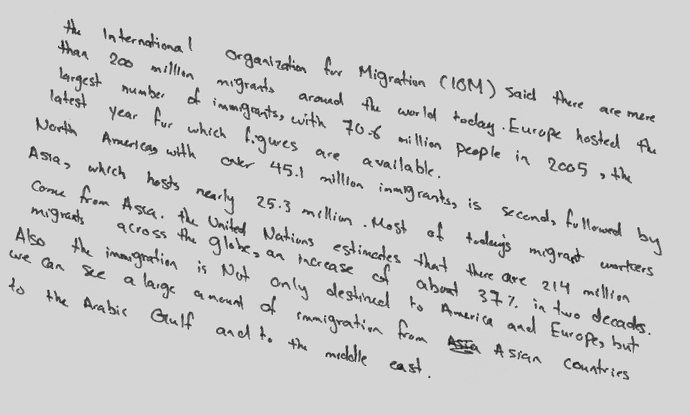 the International Organization for Migration (IOM) said there are more
than 200 million migrants around the world today. Europe hosted the
largest number of immigrants, with 70.6 million people in 2005, the
latest year for which figures are available.
North America, with over 45.1 million immigrants, is second, followed by
Asia, which hosts nearly 25.3 million. Most of today's migrant workers
come from Asia. the United Nations estimates that there are 214 million
migrants across the globe, an increase of about 37% in two decades.
Also the immigration is Not only destined to America and Europe, but
we can see a large amount of immigration from Asian countries
to the Arabic Gulf and to the middle east.